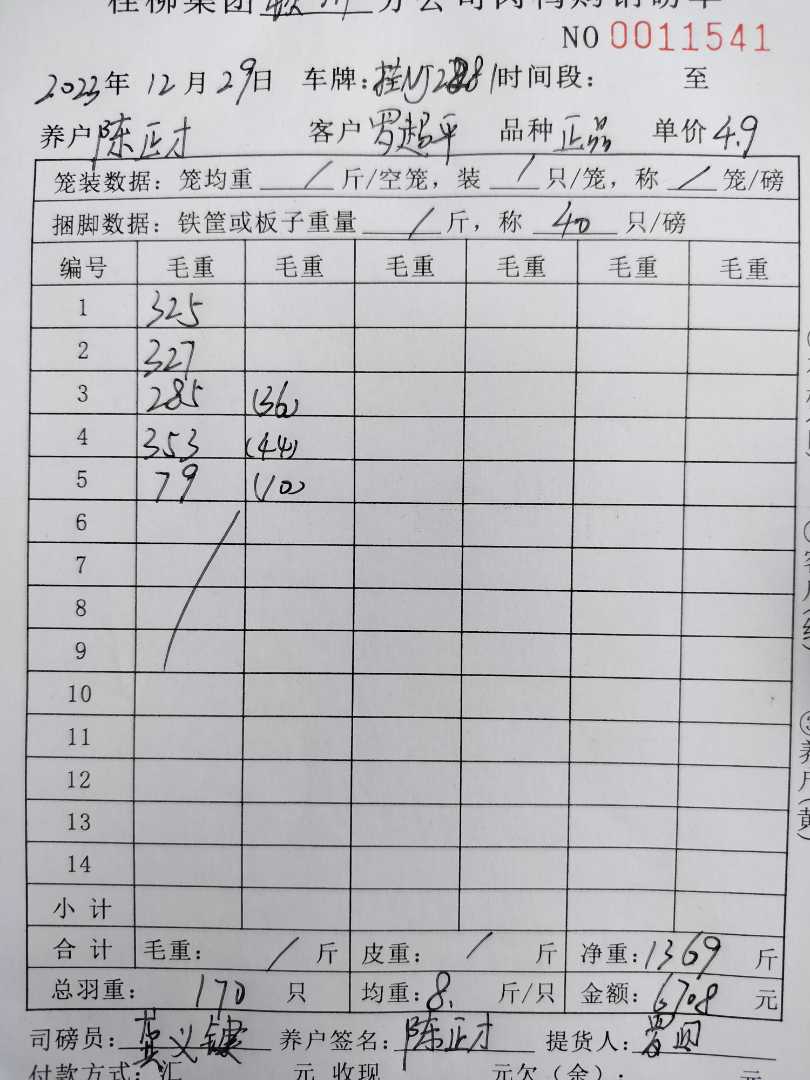 桂柳集团 分公司肉鸭购销磅单
NO 0011541
2023年 12月 29日 车牌:桂NJ2881 时间段: 至
养户 陈正才 客户 罗超平 品种 正品 单价 4.9
笼装数据: 笼均重 / 斤/空笼, 装 / 只/笼, 称 / 笼/磅
捆脚数据: 铁筐或板子重量 / 斤, 称 40 只/磅
编号 毛重 毛重 毛重 毛重 毛重 毛重
1 325
2 327
3 285 (36)
4 353 (44)
5 79 (10)
6
7
8
9
10
11
12
13
14
小计
合计 毛重: / 斤 皮重: / 斤 净重: 1369 斤
总羽重: 170 只 均重: 8. 斤/只 金额: 6708 元
司磅员: 养户签名: 陈正才 提货人:
付款方式: 汇 元 收现 元欠(余): 元